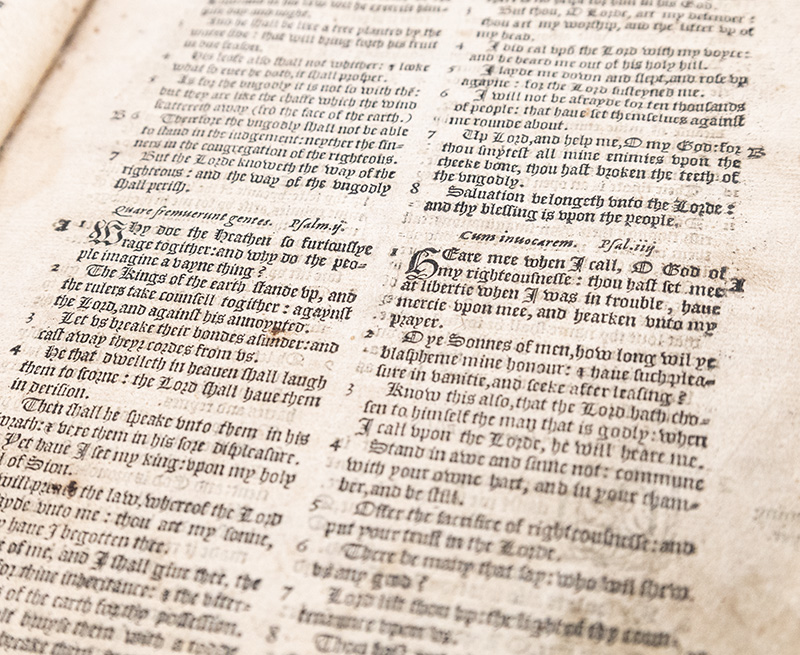 And he shall be like a tree planted by the
water side: that will bring forth his fruit
in due season.
4 His leafe also shall not whither: & looke
what so ever he doth, it shall prosper.
5 As for the vngodly it is not so with thē:
but they are like the chaffe which the wind
scattereth away (frō the face of the earth.)
B 6 Therefore the vngodly shall not be able
to stand in the iudgement: neyther the sin-
ners in the congregation of the righteous.
7 But the Lorde knoweth the way of the
righteous: and the way of the vngodly
shall perish.
Quare fremuerunt gentes. Psalm.ij.
A 1 Why doe the Heathen so furiouslye
rage togither: and why do the peo-
ple imagine a vayne thing?
2 The Kings of the earth stande vp, and
the rulers take counsell togither: agaynst
the Lord, and against his annoynted.
3 Let vs breake their bondes asunder: and
cast away theyr cordes from vs.
4 He that dwelleth in heauen shall laugh
them to scorne: the Lord shall haue them
in derision.
Then shall he speake vnto them in his
wrath: & vexe them in his sore displeasure.
Yet haue I set my king: vpon my holy
of Sion.
the law, whereof the Lord
vnto me: thou art my sonne,
haue I begotten thee.
of me, and I shall giue thee, the
for thine inheritance: & the vtter-
of the earth for thy possession.
bruyse them with a rodde
But thou, O Lorde, art my defender:
thou art my worship, and the lifter vp of
my head.
4 I did cal vpō the Lord with my voyce:
and he heard me out of his holy hill.
5 I layde me down and slept, and rose vp
agayne: for the Lord susteyned me.
6 I will not be afrayde for ten thousands
of people: that haue set themselues against
me rounde about.
7 Up Lord, and help me, O my God: for B
thou smytest all mine enimies vpon the
cheeke bone, thou hast broken the teeth of
the vngodly.
8 Saluation belongeth vnto the Lorde:
and thy blessing is vpon the people.
Cum inuocarem. Psal.iiij.
1 HEare mee when I call, O God of A
my righteousnesse: thou hast set mee
at libertie when I was in trouble, haue
mercie vpon mee, and hearken vnto my
prayer.
2 O ye Sonnes of men, how long wil ye
blaspheme mine honour: & haue such plea-
sure in vanitie, and seeke after leasing?
3 Know this also, that the Lord hath cho-
sen to himself the man that is godly: when
I call vpon the Lorde, he will heare me.
4 Stand in awe and sinne not: commune
with your owne hart, and in your cham-
ber, and be still.
5 Offer the sacrifice of righteousnesse: and
put your trust in the Lorde.
6 There be many that say: who wil shew
vs any good?
7 Lord lift thou vp: the light of thy coun-
tenance vpon vs.
8 Thou hast